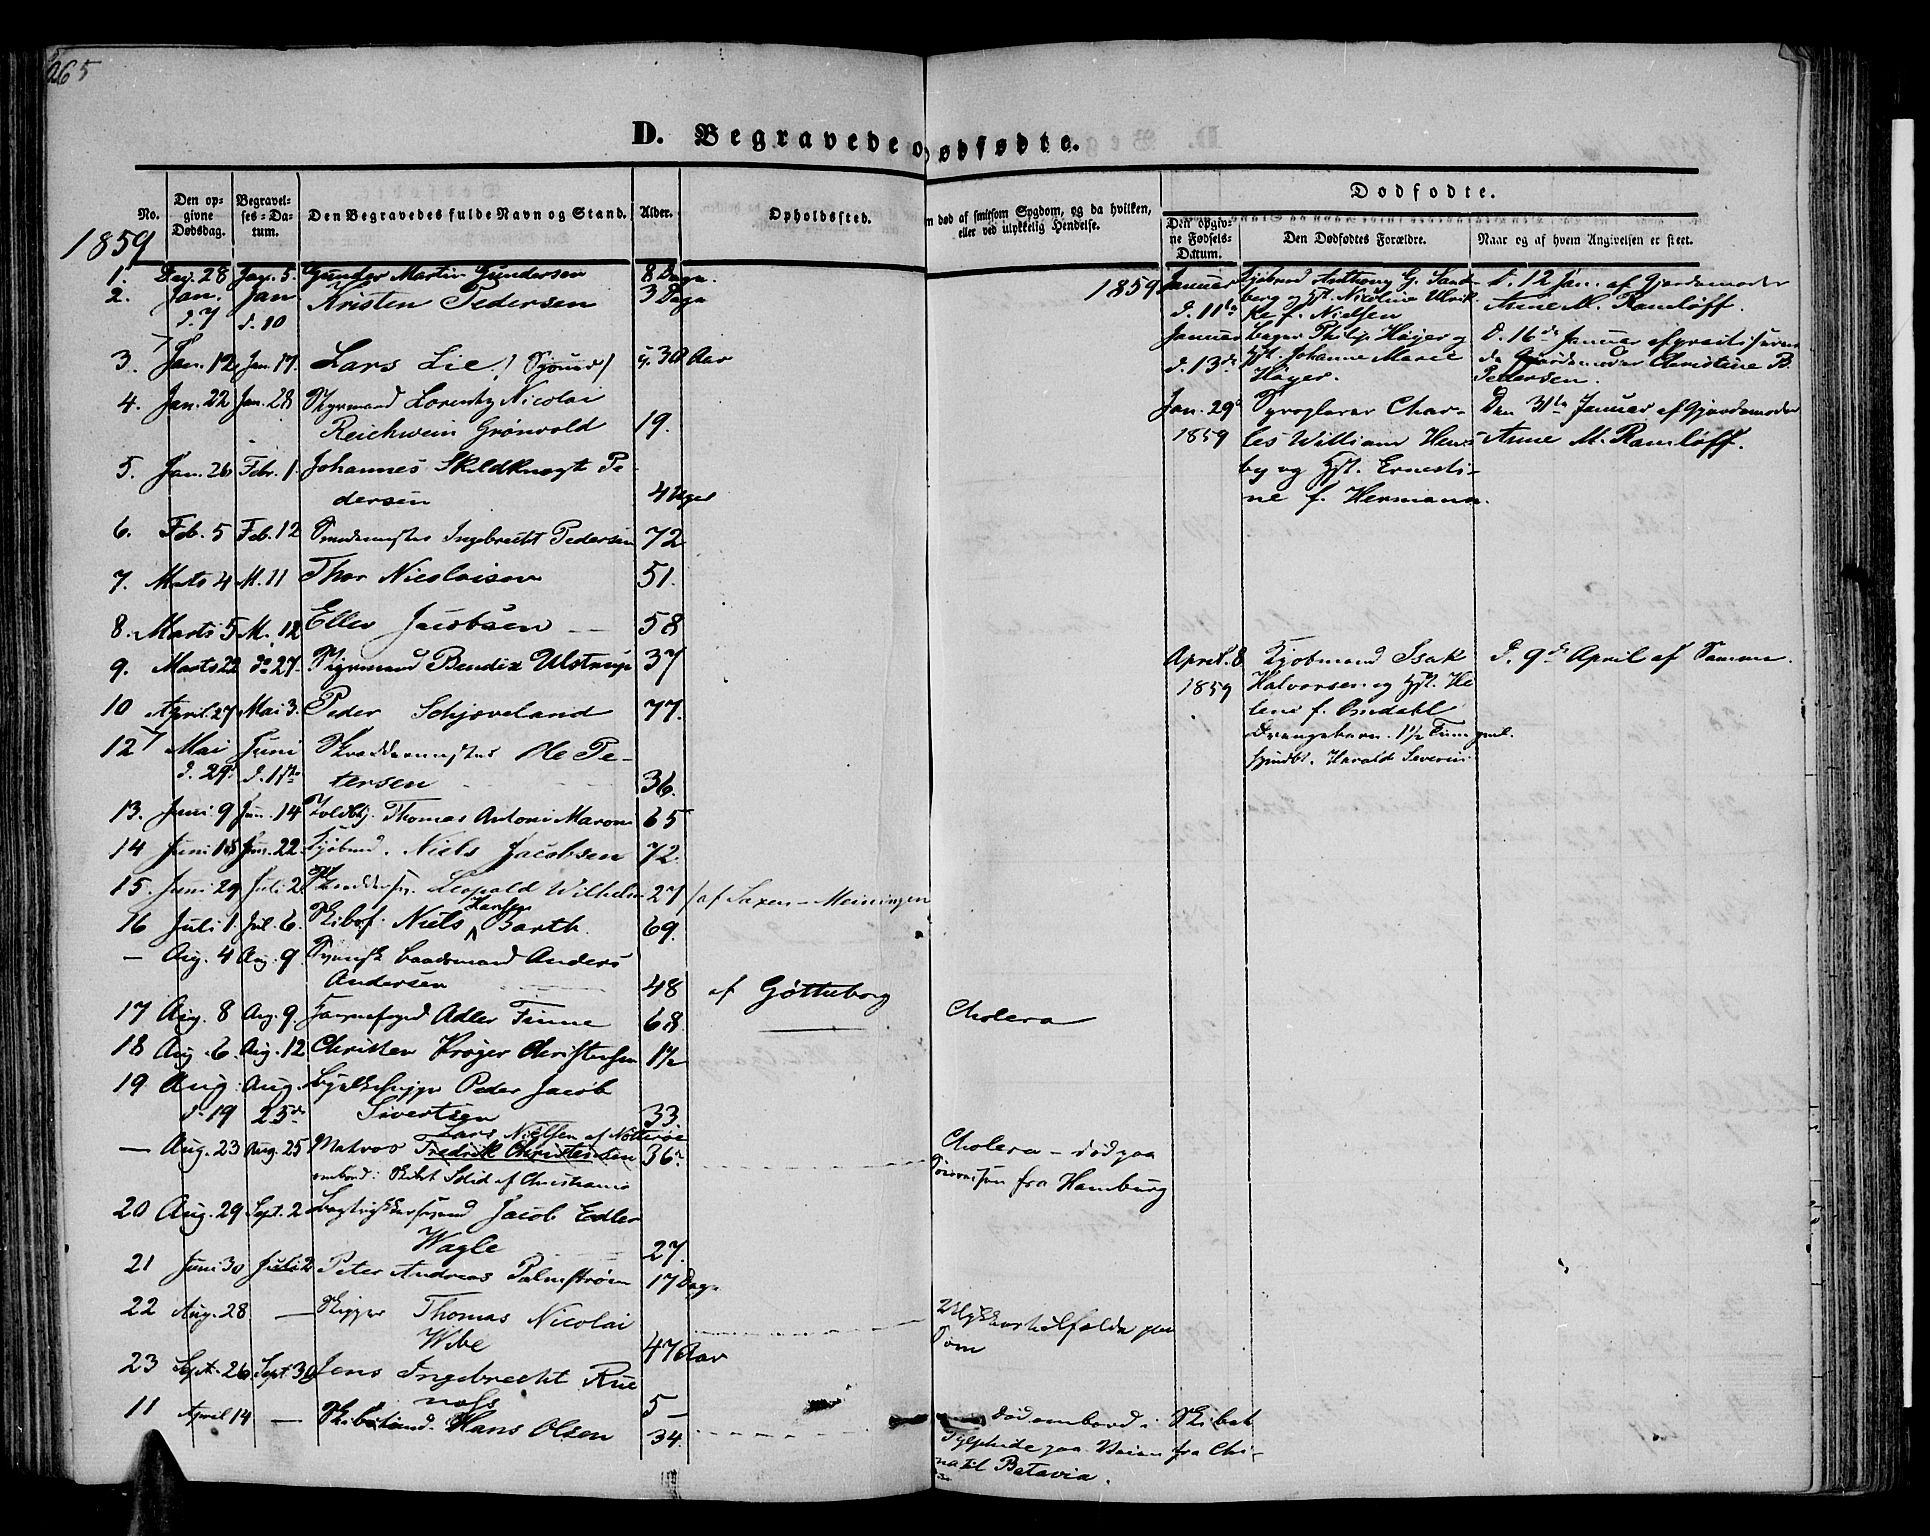 265
D. Begravede o
Dødfødte.
No.
Den op-
givne
Dødsdag.
Begravel-
ses-Da-
tum.
Den Begravedes fulde Navn og Stand.
Alder.
Opholdssted.
m død af smitsom Sygdom, og da hvilken,
eller ved ulykkelig Hendelse.
Dødfødte.
Den opgiv-
ne Fødsels-
Datum.
Den Dødfødtes Forældre.
Naar og af hvem Angivelsen er skeet.
1859
1. Dec. 28 Jan. 5. Gunder Martin Gundersen 8 Dage.
2. Jan. Jan Kristen Pedersen 3 Dage
d. 7 d. 10
3. Jan. 12 Jan. 17. Lars Lie (Sømd) 30 Aar
4. Jan. 22 Jan. 28 Styrmand Lorentz Nicolai
Reichwein Grønvold 19.
5. Jan. 26 Febr. 1. Johannes Skildknegt Pe-
dersen 4 Uger
6. Feb. 5 Feb. 12 Smedemester Ingebrecht Pedersen 72
7. Marts 4 M. 11 Thor Nicolaisen 51.
8. Marts 5 M. 12 Ellev Jacobsen 58
9. Marts 22 do 27. Styrmand Bendix Ulstrup 37
10 April. 27 Mai 3. Peder Schjoveland 77.
12 Mai Juni Skræddermester Ole Pe-
d. 29. d. 1ste tersen 36.
13. Juni 9 Jun. 14 Toldbtj. Thomas Antoni Maroni 65
14 Juni 18 Jun. 22. Kjøbmd. Niels Jacobsen 72.
15. Juni 29 Juli 2 Skræddersv. Leopold Wilhelm 27 / af Saxen-Meiningen
Hansen
16 Juli 1. Jul. 6. Skibsf. Niels Barth. 69.
— Aug. 4 Aug. 9. Svensk Baadsmand Anders
Andersen 48 af Gøtteborg
17 Aug. 8 Aug. 9. Adler Finne 68. Cholera
18 Aug. 6. Aug. 12 Christen Krøger Christensen 1½
19 Aug. Aug. Peder Jacob
d. 19 25de Sivertsen 33.
Lars Nielsen af Nøtterøe
— Aug. 23 Aug. 25 Matros Fredrik Christensen 36. Cholera – død paa
ombord i Skibet Solid af Christiania fra Hamburg
20 Aug. 29 Sept. 2 Bogtrykkersvend Jacob Edler
Wagle 27.
21 Juni 30 Juli 2 Peter Andreas Palmstrøm 17 Dage
22 Aug. 28 — Skipper Thomas Nicolai Ulykkestilfælde paa
Wibe 47 Aar
23 Sept. 26 Sept 30 Jens Ingebrecht Rue
næs 5 –
11 April 14 — Hans Olsen 34. død ombord i Skibet
paa Veien fra Chi-
na til Batavia.
1859
Januar Kjøbmd Anthony G. Sand- d. 12 Jan. af Gjordemoder
d. 11te berg og Hst. Nicoline Ulrik- Anne M. Ramløff.
ke f. Nielsen
Januar Bager Philip Høyer og D. 16de Januar af
d. 13de Hst. Johanne Marie de Gjordemoder Christine B.
Høyer. Pedersen.
Jan. 29 Char- Den 31te Januar af Gjordemoder
1859 les William Hens- Anne M. Ramløff.
by og Hst. Ernesti-
ne f. Hermann.
April. 8 Kjøbmand Isak d. 9de April af Samme.
1859 Halvorsen og Hst. He
lene f. Omdahl
Drengebarn. 1½ Time gml.
hjmdbt. Harald Severin